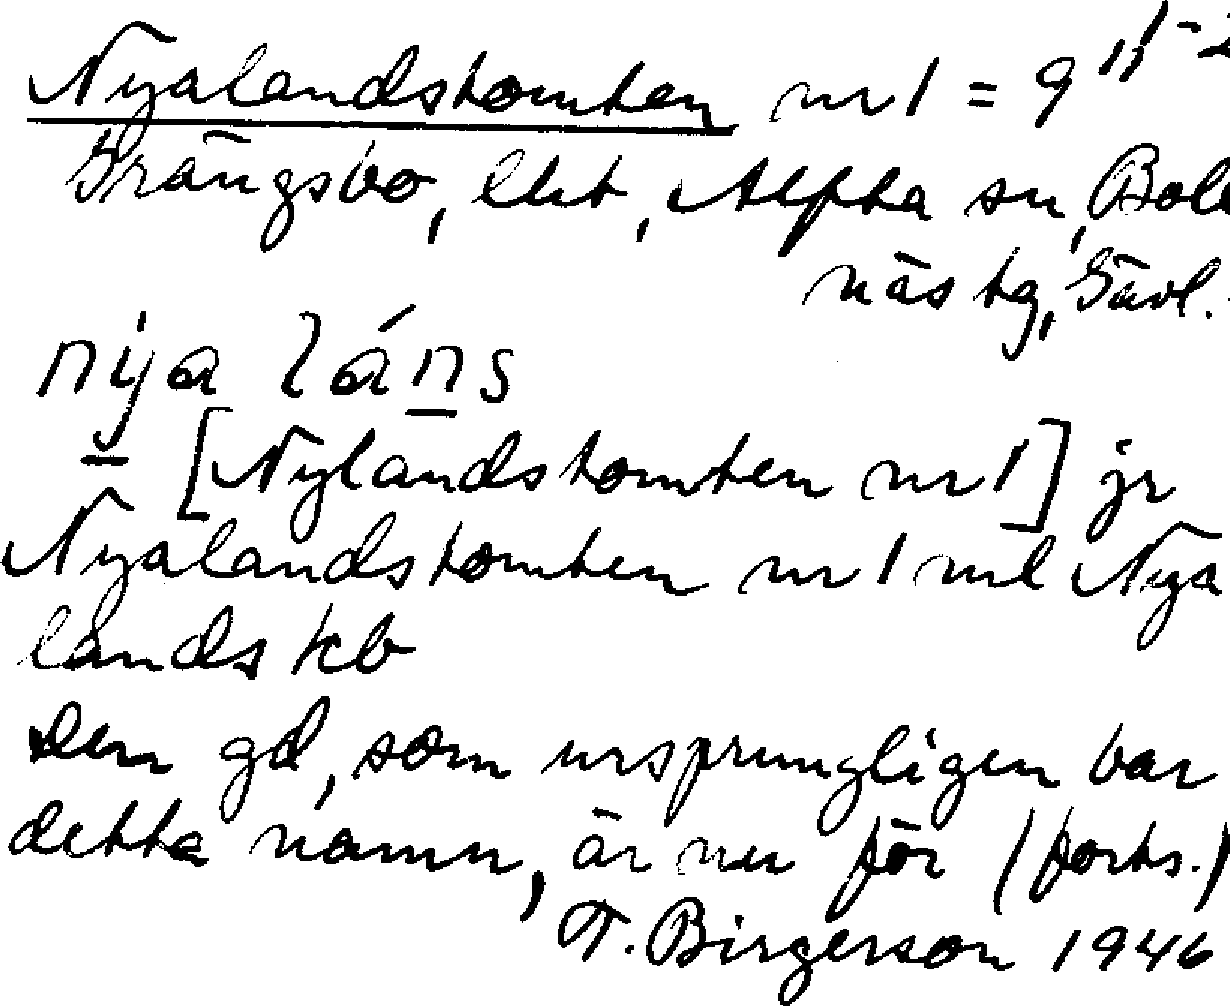 Nyalandstomten nr 1 = 9 11 1-2
Grängsbo, lht, Alfta sn, Boll
näs tg, Gävl.
nya láns
[Nylandstomten nr 1] jr
Nyalandstomten nr 1 ml Nya
lands kb
Den gd, som ursprungligen bar
detta namn, är nu för (forts.)
T. Birgerson 1946